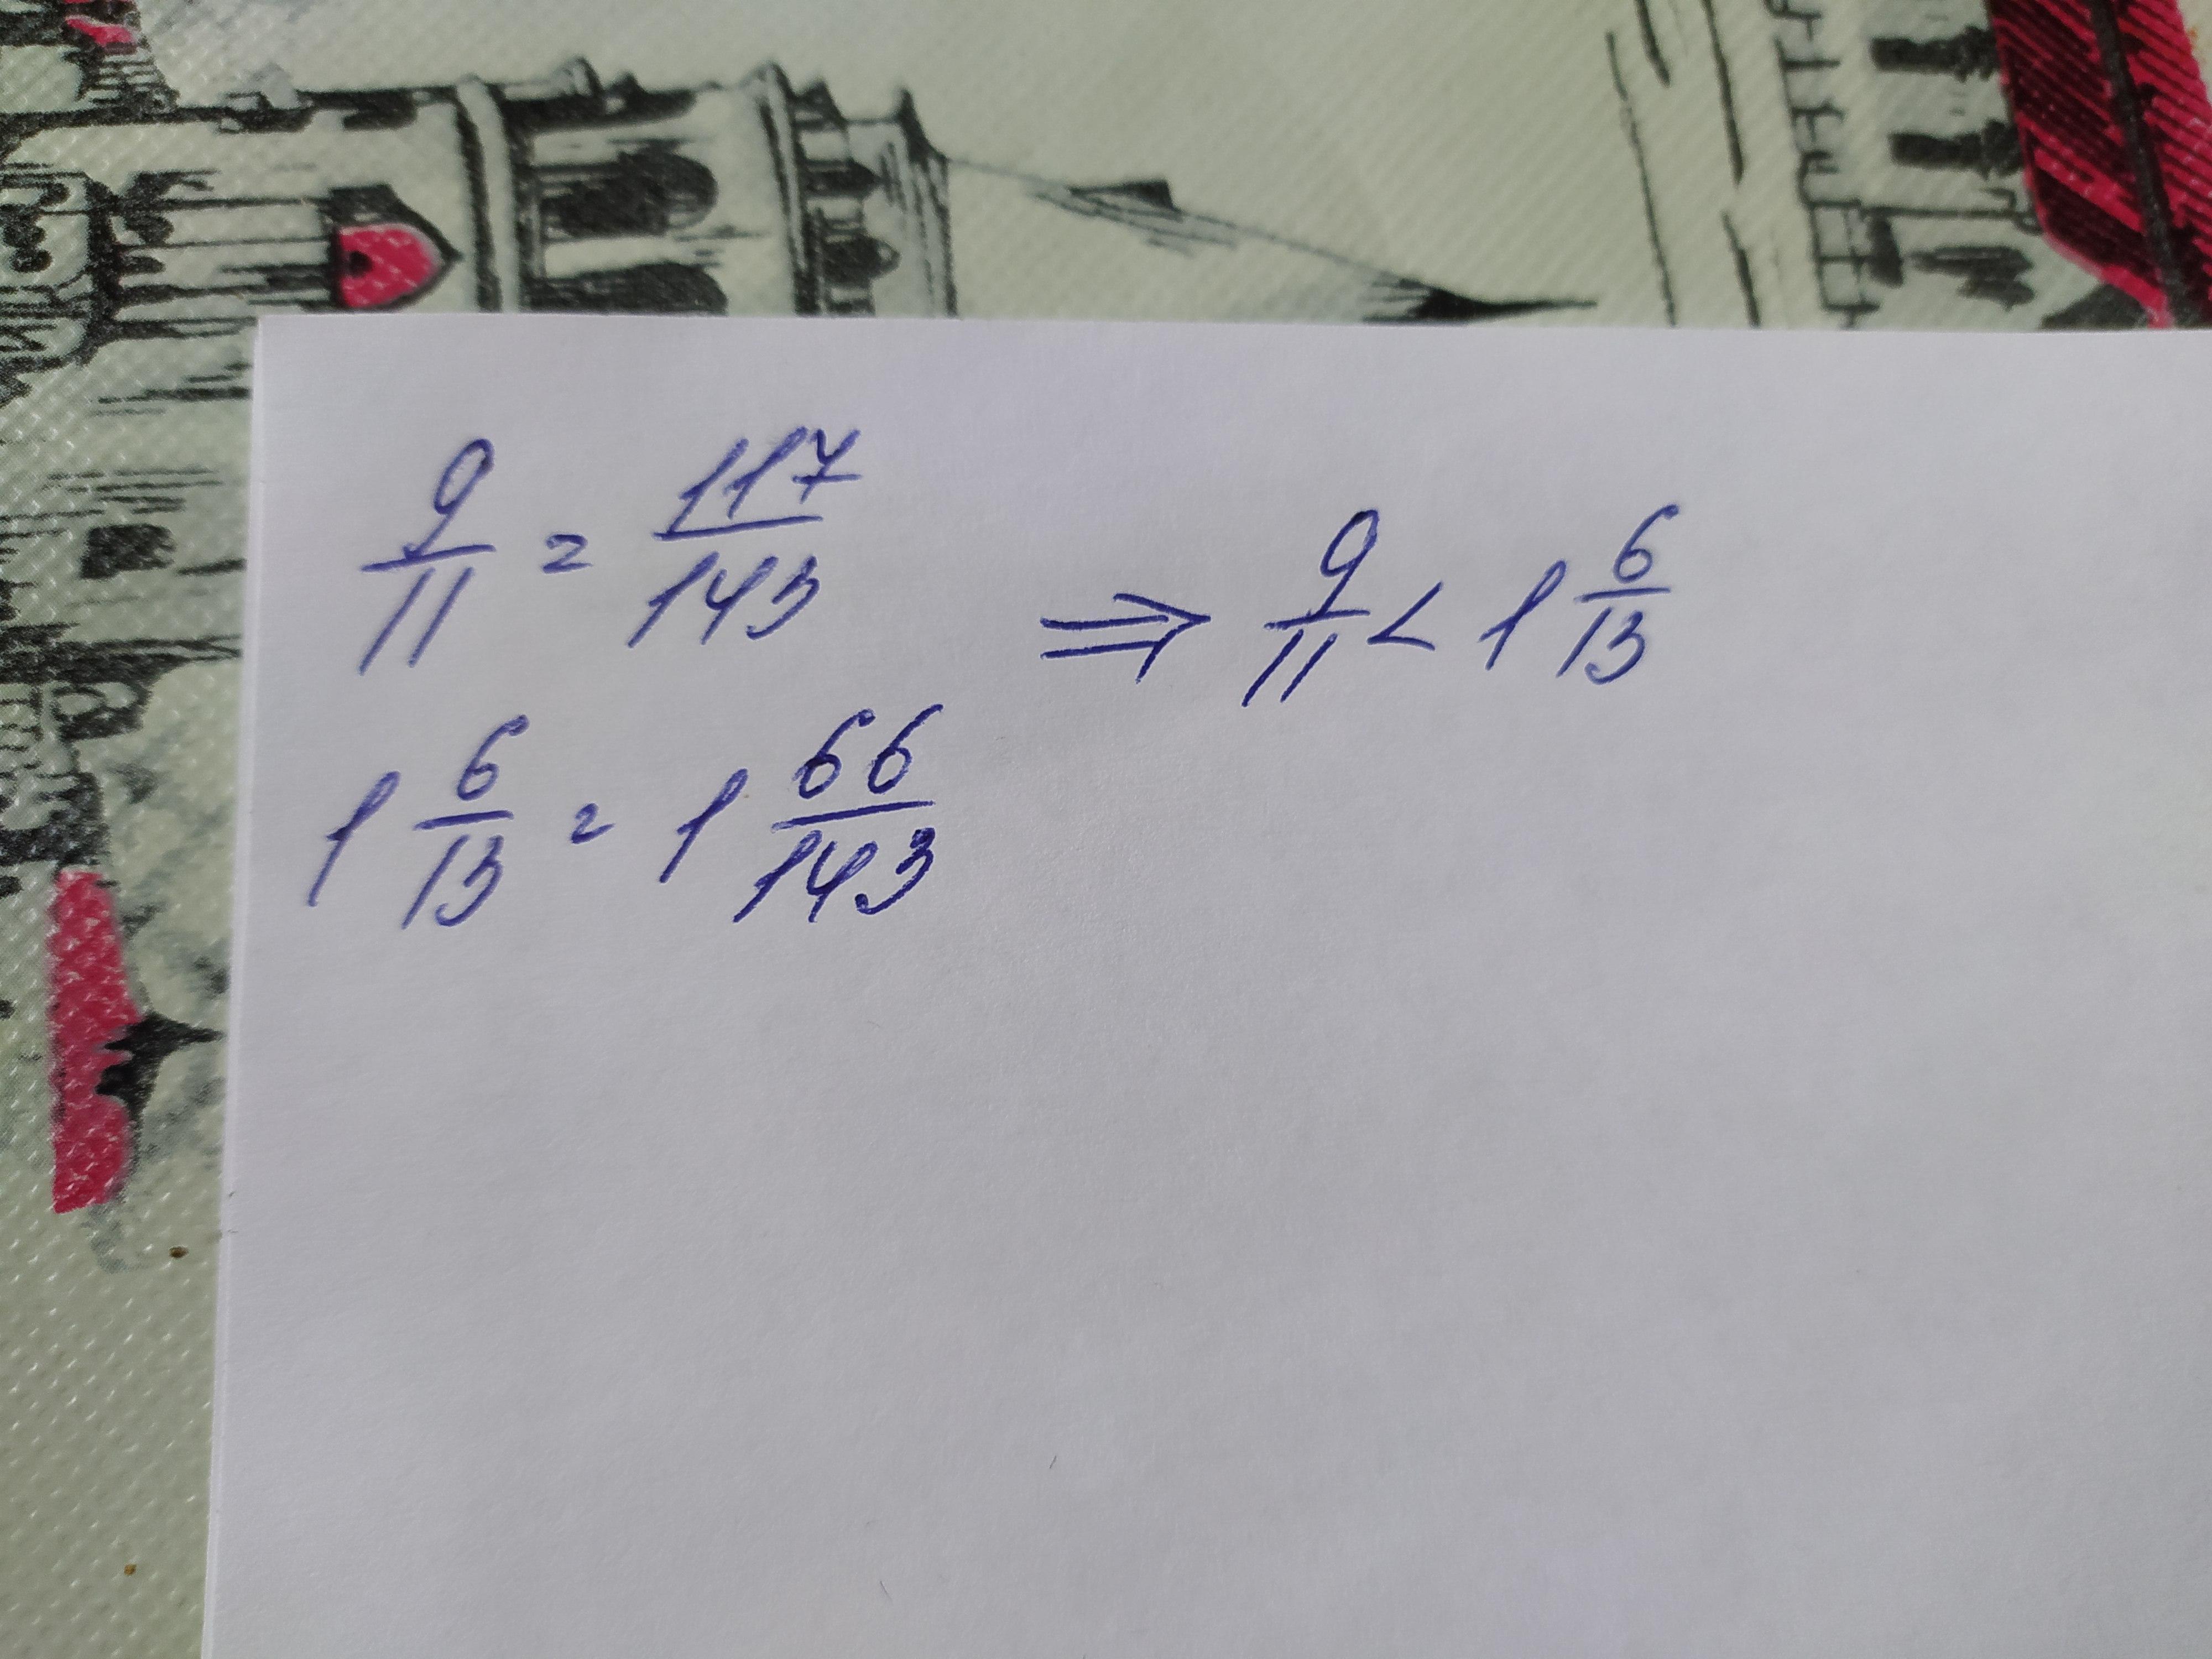 9/11 = 117/143
1 6/13 = 1 66/143
⇒ 9/11 < 1 6/13